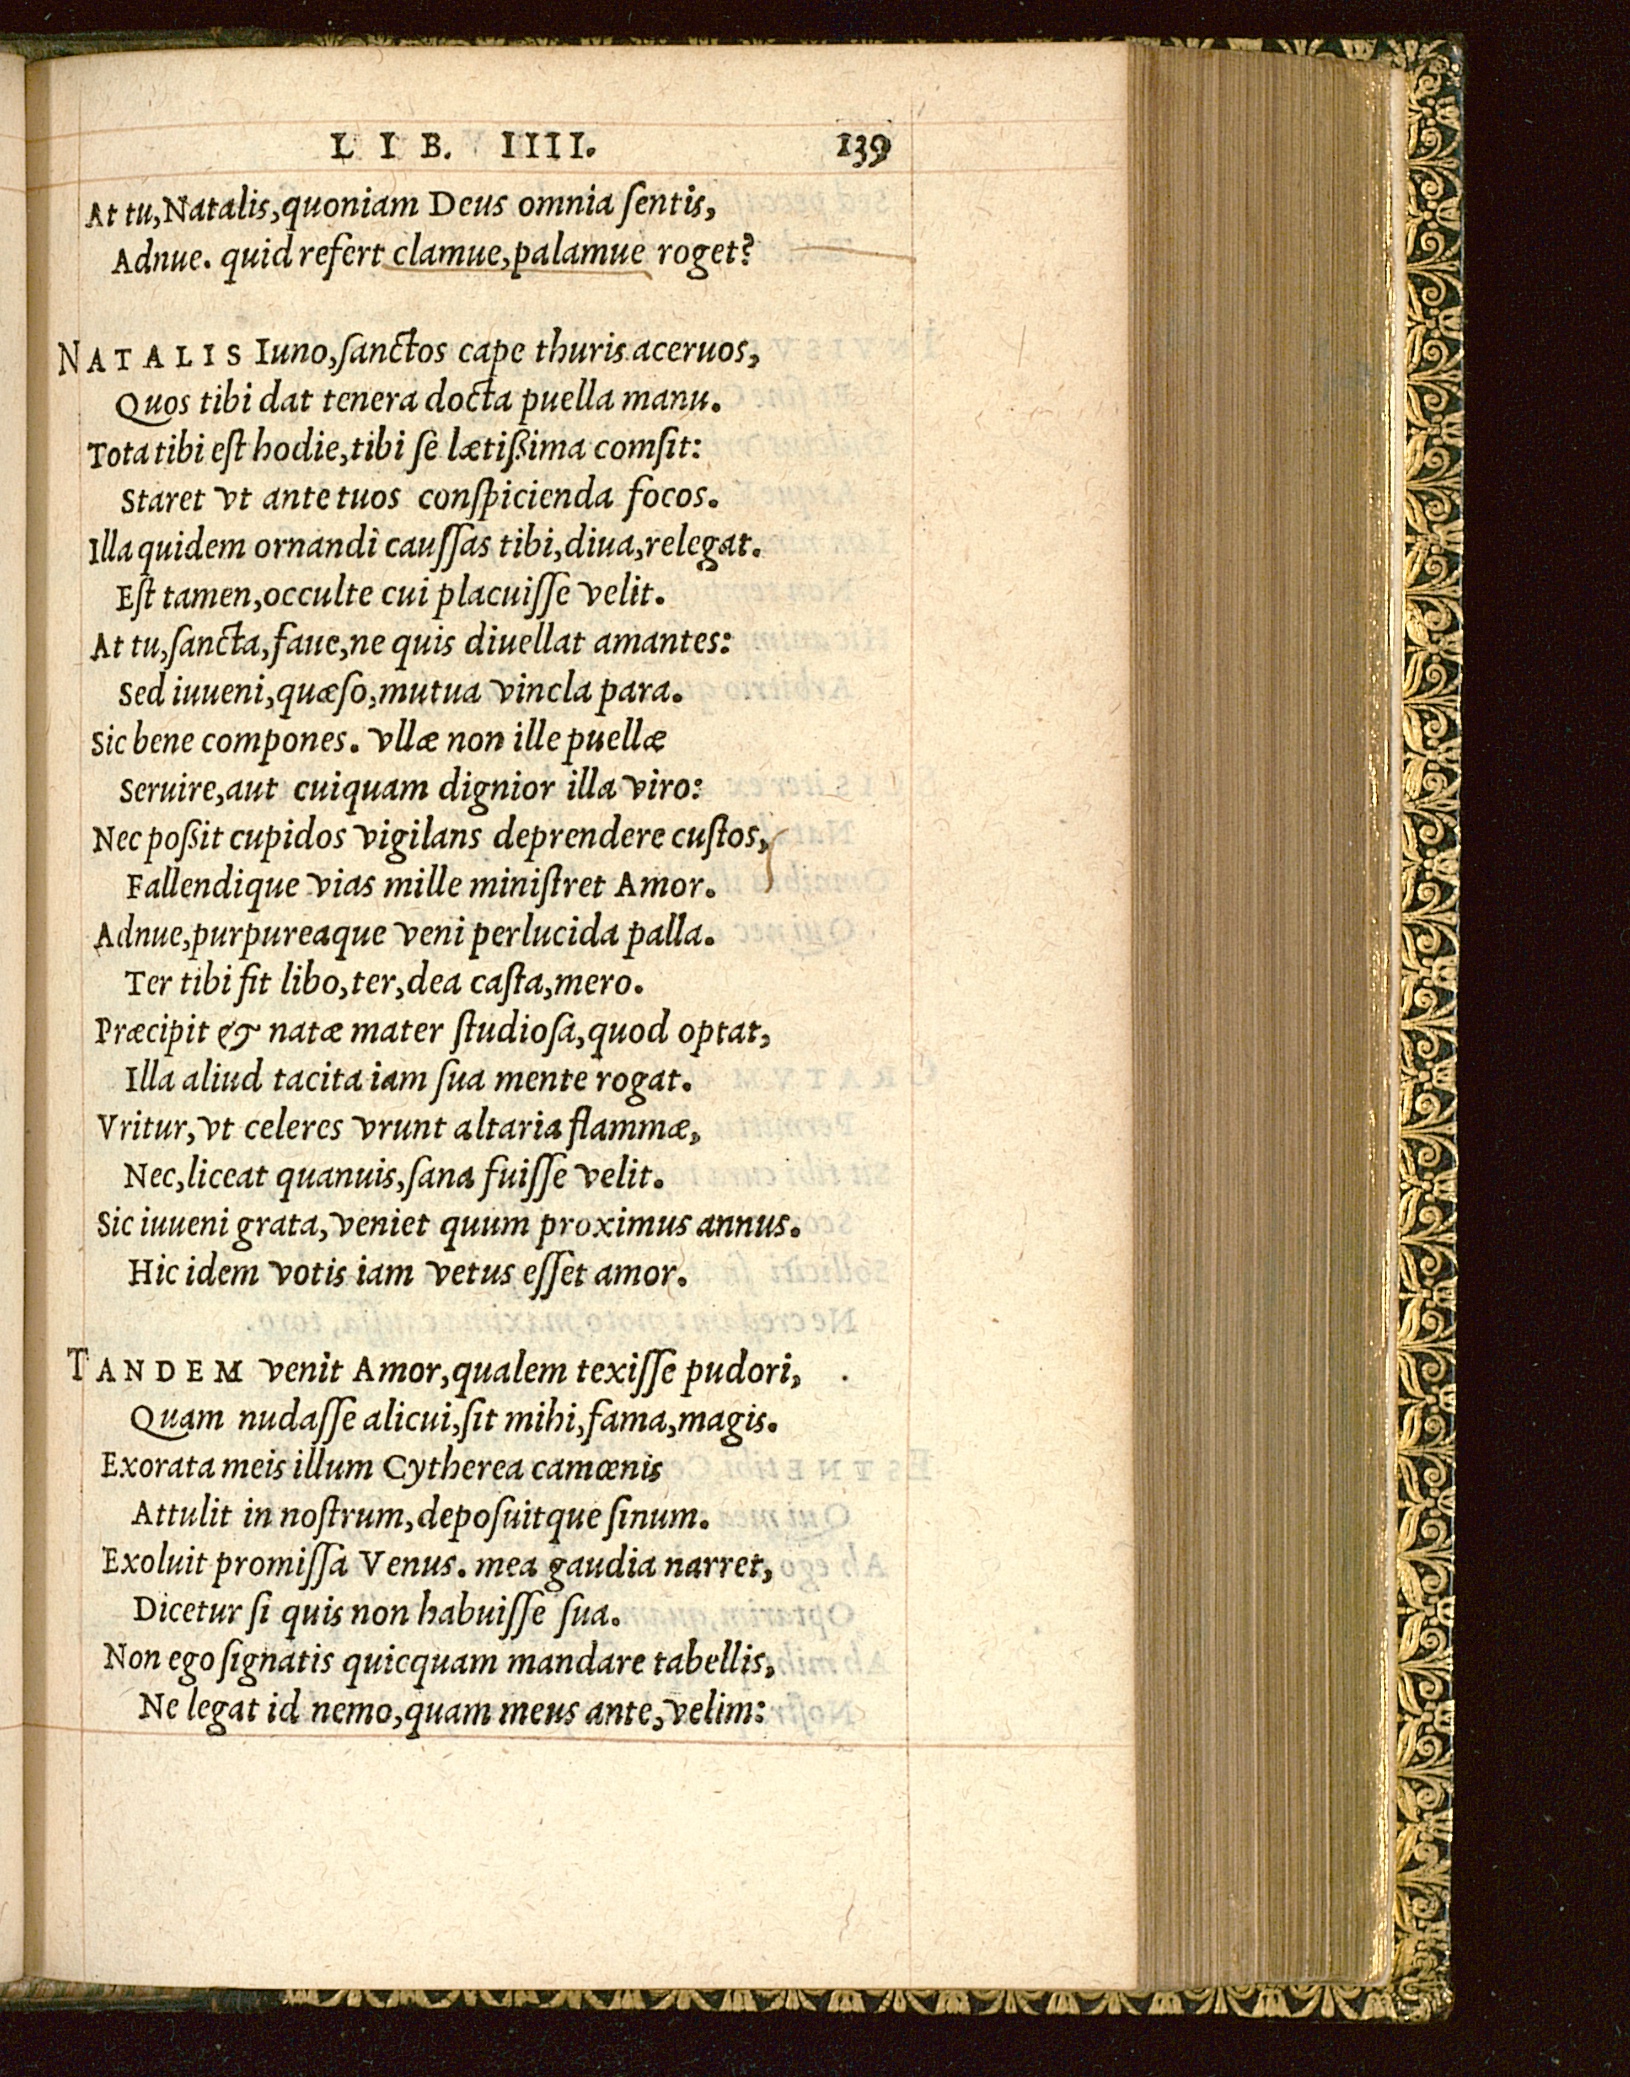 LIB. IIII. 139
At tu, Natalis, quoniam Deus omnia ſentis,
Adnue. quid refert clamue, palamue roget?
NATALIS Iuno, ſanctos cape thuris aceruos,
Quos tibi dat tenera docta puella manu.
Tota tibi eſt hodie, tibi ſe lætißima comſit:
Staret vt ante tuos conſpicienda focos.
Illa quidem ornandi cauſſas tibi, diua, relegat.
Eſt tamen, occulte cui placuiſſe velit.
At tu, ſancta, faue, ne quis diuellat amantes:
Sed iuueni, quæſo, mutua vincla para.
Sic bene compones. vllæ non ille puellæ
Seruire, aut cuiquam dignior illa viro:
Nec poßit cupidos vigilans deprendere cuſtos,
Fallendique vias mille miniſtret Amor.
Adnue, purpureaque veni perlucida palla.
Ter tibi fit libo, ter, dea caſta, mero.
Præcipit & natæ mater ſtudioſa, quod optat,
Illa aliud tacita iam ſua mente rogat.
Vritur, vt celeres vrunt altaria flammæ,
Nec, liceat quanuis, ſana fuiſſe velit.
Sic iuueni grata, veniet quum proximus annus.
Hic idem votis iam vetus eſſet amor.
TANDEM venit Amor, qualem texiſſe pudori,
Quam nudaſſe alicui, ſit mihi, fama, magis.
Exorata meis illum Cytherea camœnis
Attulit in noſtrum, depoſuitque ſinum.
Exoluit promiſſa Venus. mea gaudia narret,
Dicetur ſi quis non habuiſſe ſua.
Non ego ſignatis quicquam mandare tabellis,
Ne legat id nemo, quam meus ante, velim: